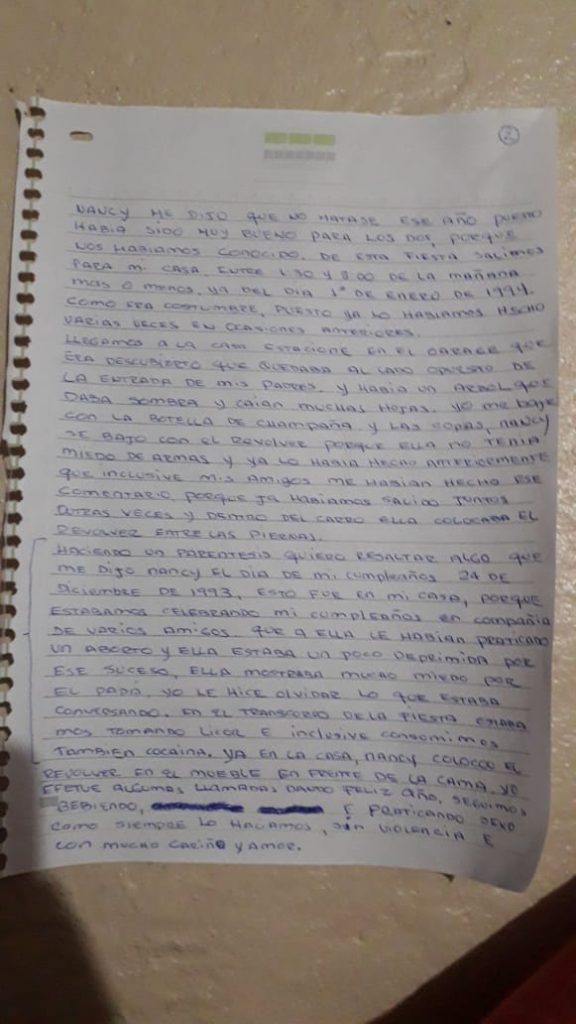 2
NANCY ME DIJO QUE NO MATASE ESE AÑO PUESTO
HABIA SIDO MUY BUENO PARA LOS DOS, PORQUE
NOS HABIAMOS CONOCIDO. DE ESTA FIESTA SALIMOS
PARA MI CASA ENTRE Y DE LA MAÑANA
MAS O MENOS, YA DEL DIA 1º DE ENERO DE 1994.
COMO ERA COSTUMBRE, PUESTO YA LO HABIAMOS HECHO
VARIAS VECES EN OCASIONES ANTERIORES.
LLEGAMOS A LA CASA ESTACIONE EN EL GARAGE QUE
ERA DESCUBIERTO QUE QUEDABA AL LADO OPUESTO DE
LA ENTRADA DE MIS PADRES. Y HABIA UN ARBOL QUE
DABA SOMBRA Y CAIAN MUCHAS HOJAS. YO ME BAJE
CON LA BOTELLA DE CHAMPAÑA Y LAS COPAS, NANCY
SE BAJO CON EL REVOLVER PORQUE ELLA NO TENIA
MIEDO DE ARMAS Y YA LO HABIA HECHO ANTERIORMENTE
QUE INCLUSIVE MIS AMIGOS ME HABIAN HECHO ESE
COMENTARIO PORQUE YA HABIAMOS SALIDO JUNTOS
OTRAS VECES Y DENTRO DEL CARRO ELLA COLOCABA EL
REVOLVER ENTRE LAS PIERNAS.
HACIENDO UN PARENTESIS QUIERO RESALTAR ALGO QUE
ME DIJO NANCY EL DIA DE MI CUMPLEAÑOS 24 DE
DICIEMBRE DE 1993, ESTO FUE EN MI CASA, PORQUE
ESTABAMOS CELEBRANDO MI CUMPLEAÑOS EN COMPAÑIA
DE VARIOS AMIGOS QUE A ELLA LE HABIAN PRATICADO
UN ABORTO Y ELLA ESTABA UN POCO DEPRIMIDA POR
ESE SUCESO, ELLA MOSTRABA MUCHO MIEDO POR
EL PAPÁ, YO LE HICE OLVIDAR LO QUE ESTABA
CONVERSANDO. EN EL TRANSCURSO DE LA FIESTA ESTABA
MOS TOMANDO LICOR E INCLUSIVE CONSUMIMOS
TAMBIEN COCAINA. YA EN LA CASA, NANCY COLOCO EL
REVOLVER EN EL MUEBLE EN FRENTE DE LA CAMA, YO
EFETUE ALGUMAS LLAMADAS DANDO FELIZ AÑO, SEGUIMOS
BEBIENDO, E PRATICANDO SEXO
COMO SIEMPRE LO HACIAMOS, SIN VIOLENCIA E
CON MUCHO CARIÑO Y AMOR.